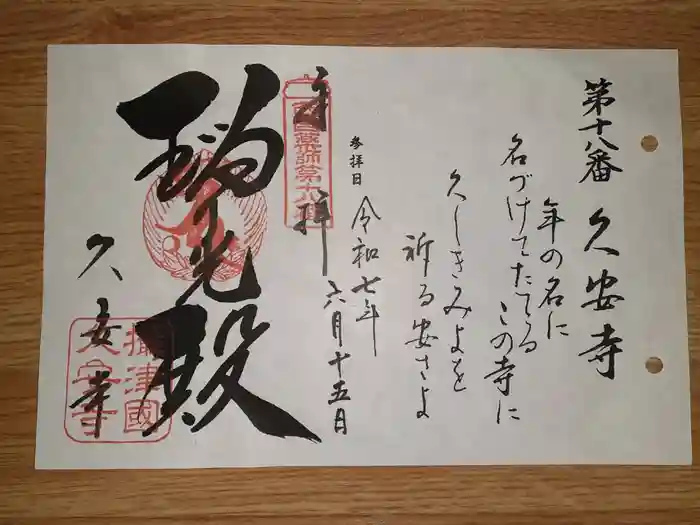 第十八番 久安寺
年の名に
名づけてたてる この寺に
久しきみよを
祈る安さよ
参拝日 令和七年
六月十五日
奉拝
西国薬師第十八番
瑠光殿
久安寺
攝津國
久安寺